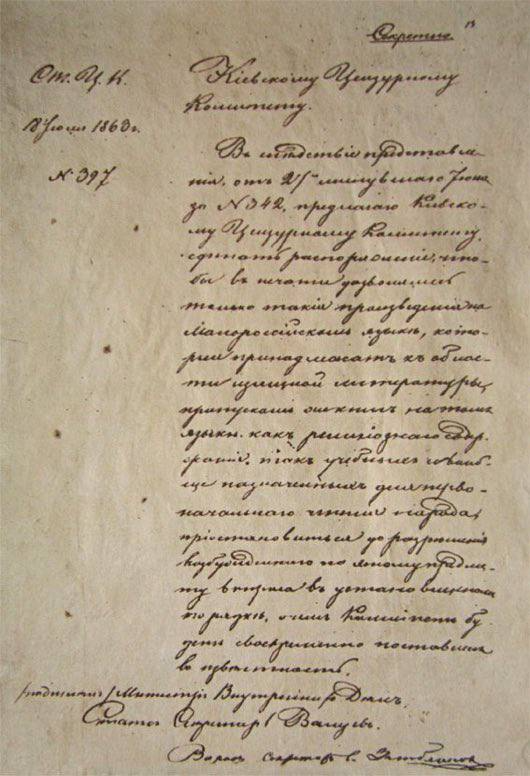 Секретно
От. Ц. К.
18 Іюля 1863 г.
№ 397
Кіевскому Цензурному
Комитету.
Въ слѣдствіе представле-
нія, отъ 27го минувшаго Іюня
за № 342, предлагаю Кіевско-
му Цензурному Комитету,
сдѣлать распоряженіе, что-
бы въ печати дозволялись
только такія произведенія на
Малороссійскомъ языкѣ, кото-
рыя принадлежатъ къ облас-
ти изящной литературы;
пропускомъ же книгъ на томъ
языкѣ какъ религіознаго содер-
жанія, такъ учебныхъ и вооб-
ще назначаемыхъ для перво-
начальнаго чтенія народа,
пріостановиться до разрѣшенія
возбужденнаго по этому предме-
ту вопроса въ установленномъ
порядкѣ, о чемъ Комитетъ бу-
детъ своевременно поставленъ
въ извѣстность.
/подписалъ/ Министръ Внутреннихъ Дѣлъ,
Статсъ Секретарь Валуевъ.
Секретарь